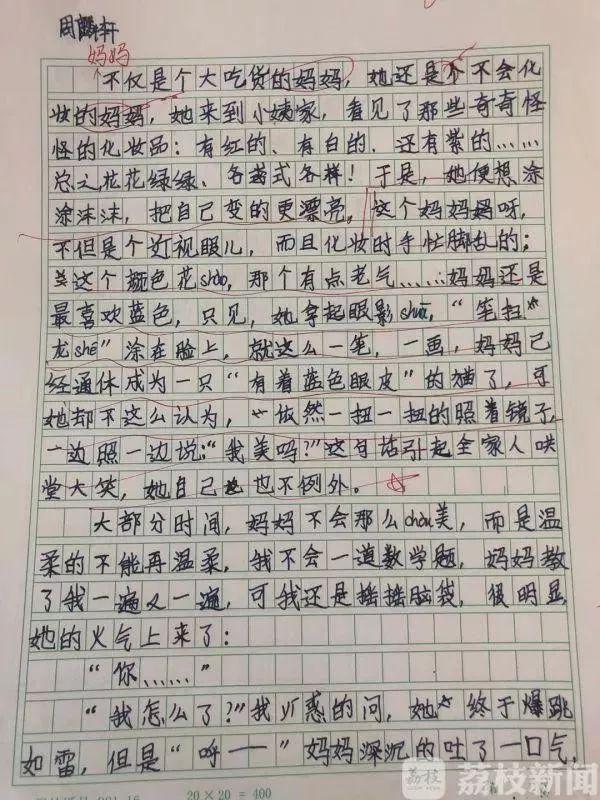 周麟轩
妈妈
不仅是个大吃货的妈妈，她还是个不会化
妆的妈妈，她来到小姨家，看见了那些奇奇怪
怪的化妆品：有红的、有白的、还有紫的……
总之花花绿绿、各式各样！于是，她便想涂
涂沫沫，把自己变的更漂亮，这个妈妈妈呀，
不但是个近视眼儿，而且化妆时手忙脚乱的；
这个颜色花shào，那个有点老气……妈妈还是
最喜欢蓝色，只见，她拿起眼影shuā，“笔扫
龙shé”涂在脸上，就这么一笔，一画，妈妈已
经通体成为一只“有着蓝色眼皮”的猫了，可
她却不这么认为，依然一扭一扭的照着镜子，
一边照一边说：“我美吗？”这句话引起全家人哄
堂大笑，她自己也不例外。
大部分时间，妈妈不会那么chòu美，而是温
柔的不能再温柔，我不会一道数学题，妈妈教
了我一遍又一遍，可我还是摇摇脑袋，很明显，
她的火气上来了：
“你……”
“我怎么了？”我疑惑的问，她终于爆跳
如雷，但是“呼——”妈妈深沉的吐了一口气，
20×20=400
荔枝
荔枝新闻